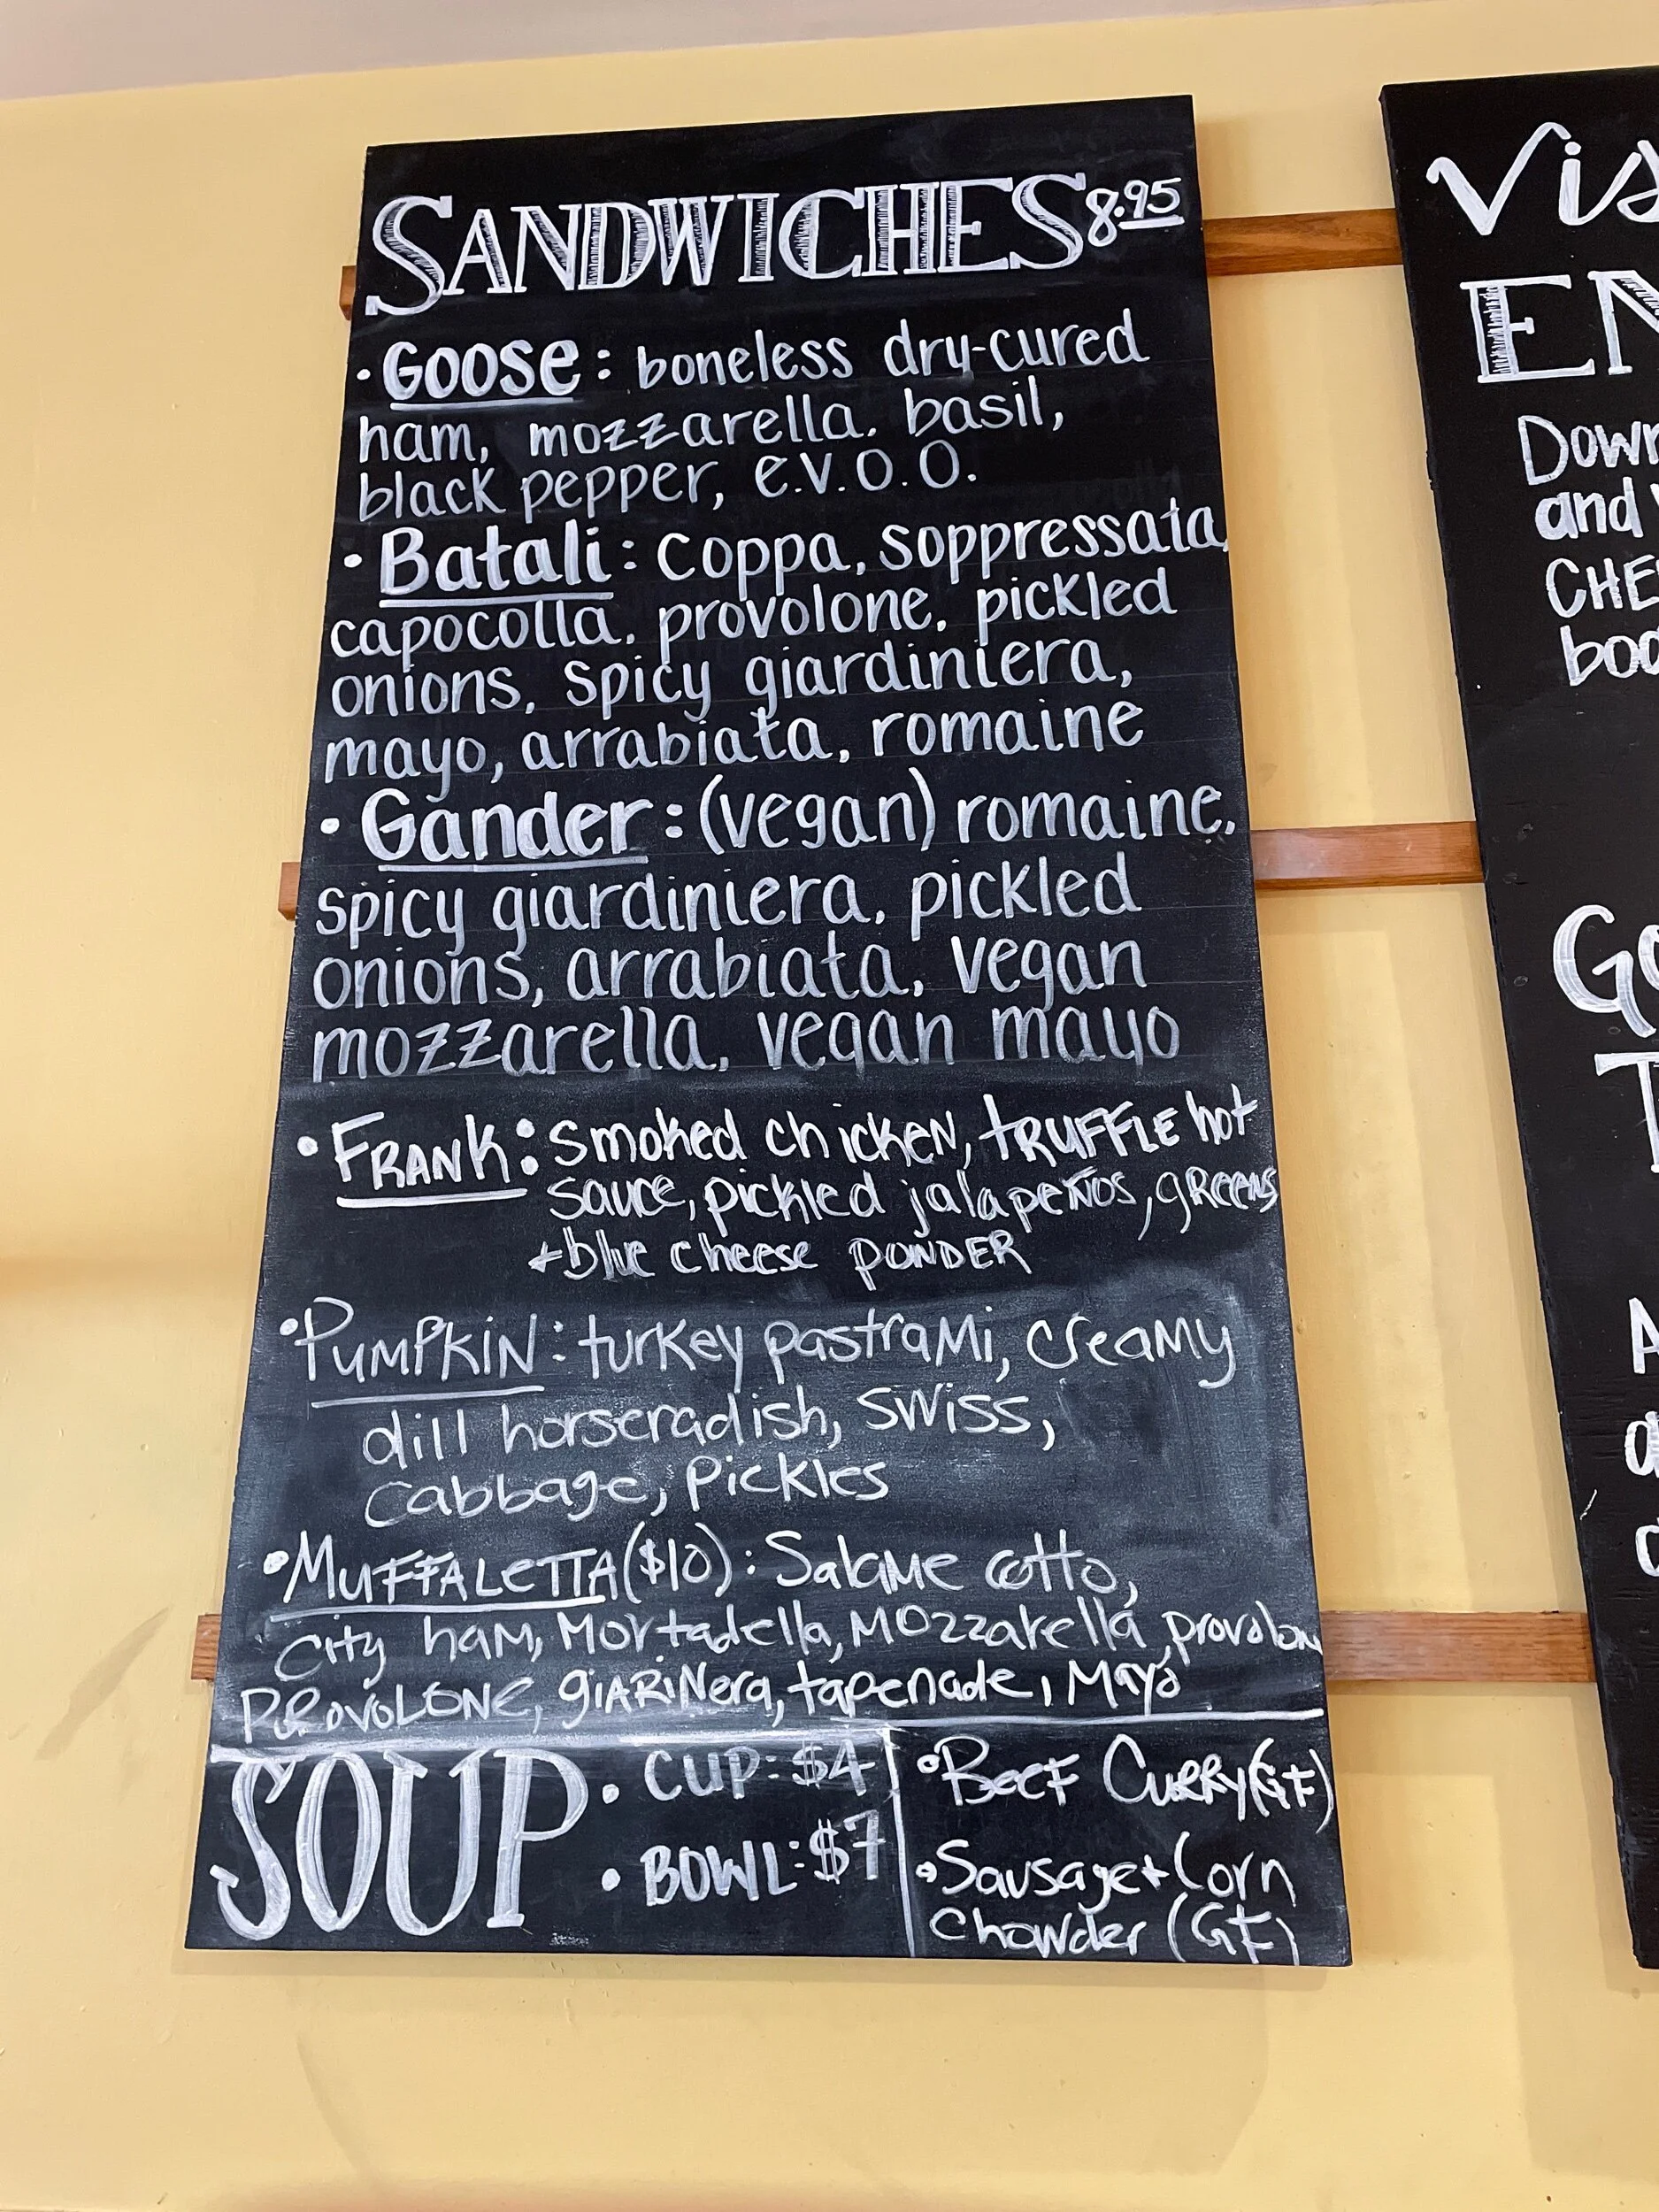 SANDWICHES 8.95
· GOOSE: boneless dry-cured
ham, mozzarella. basil,
black pepper, e.v.o.o.
· Batali: coppa, soppressata,
capocolla, provolone, pickled
onions, spicy giardiniera,
mayo, arrabiata, romaine
· Gander: (vegan) romaine,
spicy giardiniera, pickled
onions, arrabiata, vegan
mozzarella, vegan mayo
• FRANK: smoked chicken, TRUFFLE hot
sauce, pickled jalapeños, greens
+ blue cheese POWDER
• PUMPKIN: turkey pastrami, creamy
dill horseradish, swiss,
cabbage, pickles
• MUFFALETTA ($10): Salame cotto,
city ham, Mortadella, Mozzarella, provolone
PROVOLONE, giARiNera, tapenade, Mayo
SOUP • CUP: $4
• BOWL: $7
• Beef Curry (GF)
• Sausage + Corn
Chowder (GF)
Vis
EN
Down
and
CHE
boo
Go
T
A
a